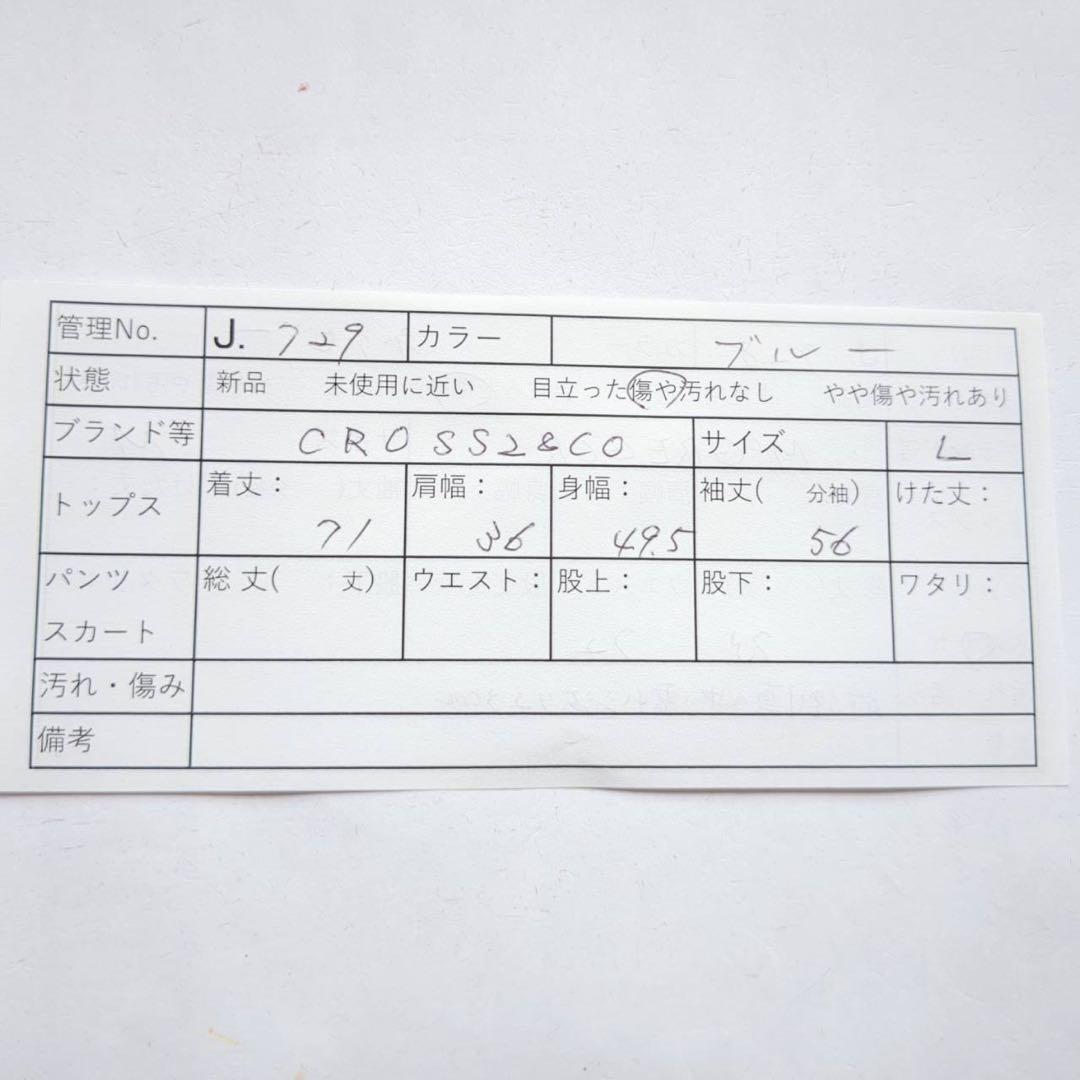 管理No. J. 729 カラー ブルー
状態 新品 未使用に近い 目立った傷や汚れなし やや傷や汚れあり
ブランド等 CROSS2&CO サイズ L
トップス 着丈: 71 肩幅: 36 身幅: 49.5 袖丈( 分袖) 56 けた丈:
パンツ 総丈( 丈) ウエスト: 股上: 股下: ワタリ:
スカート
汚れ・傷み
備考